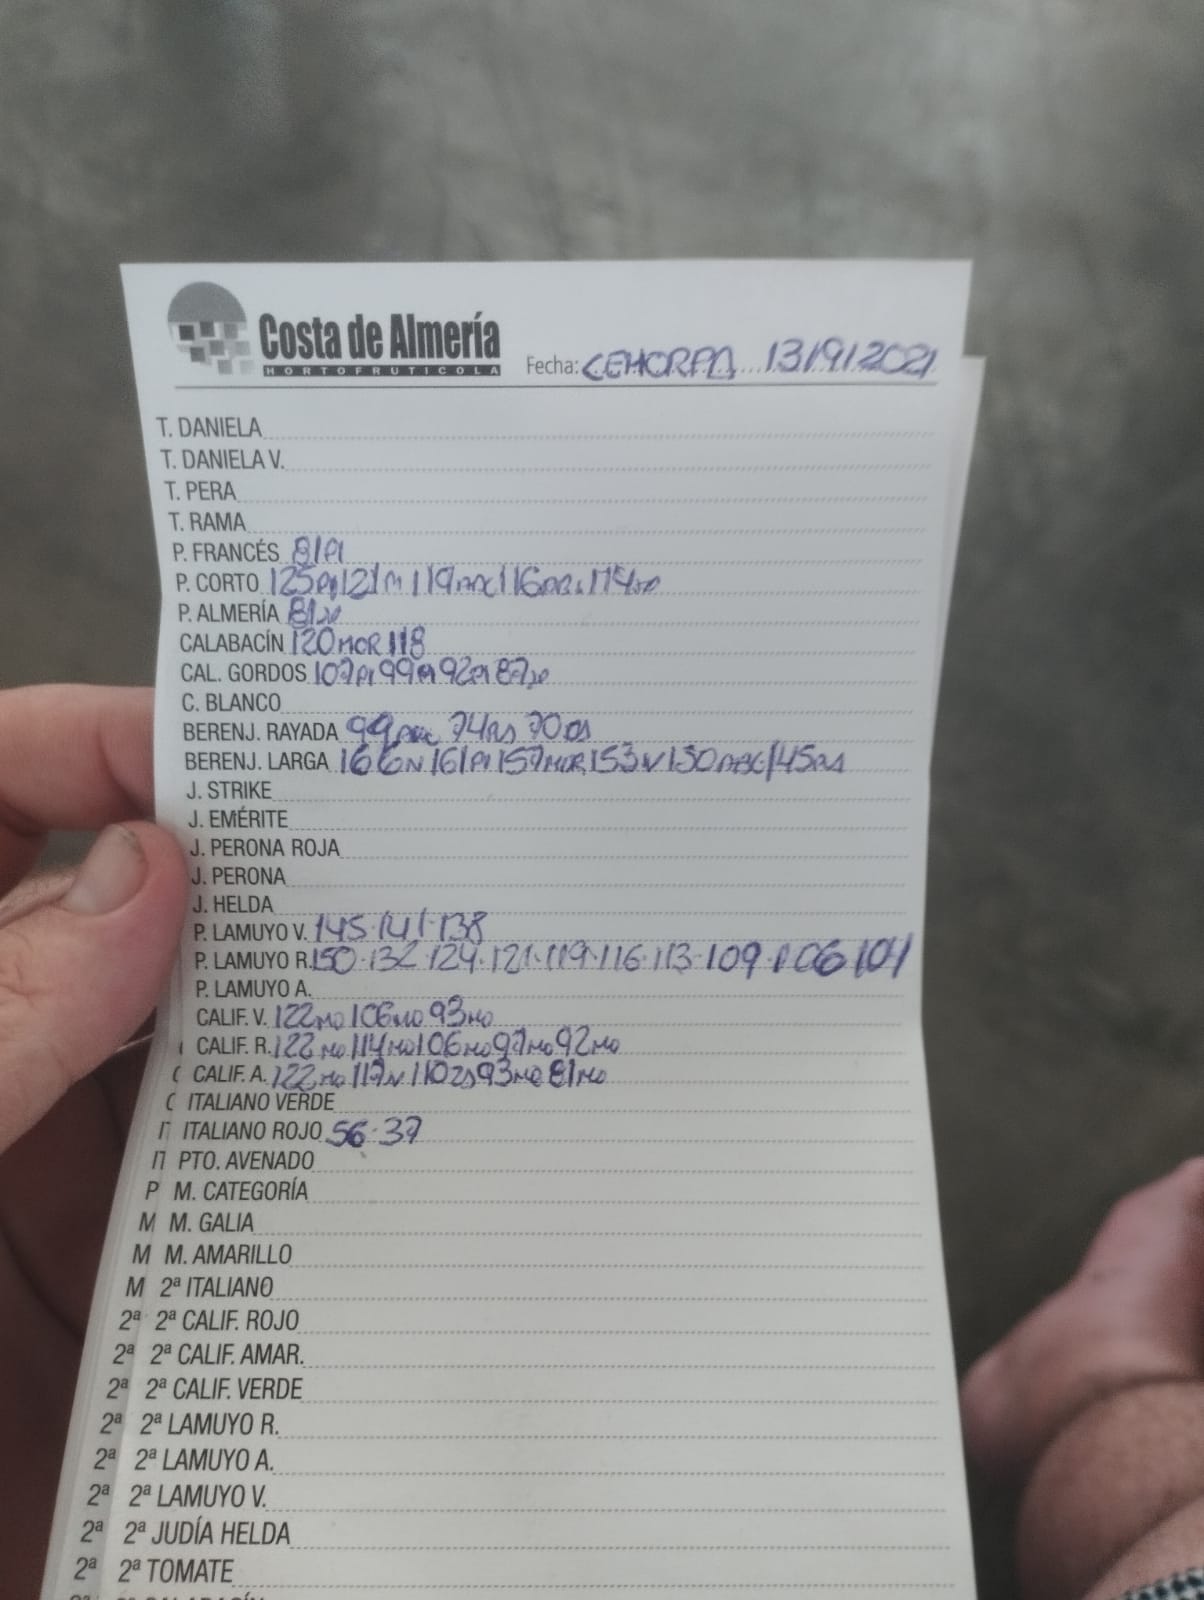 Costa de Almería
HORTOFRUTICOLA
Fecha: CEHORPA 13/9/2021
T. DANIELA
T. DANIELA V.
T. PERA
T. RAMA
P. FRANCÉS 81PI
P. CORTO 125PI 121PI 119ABC 116 114
P. ALMERÍA 81
CALABACÍN 120MOR 118
CAL. GORDOS 107PI 99PI 92PI 87
C. BLANCO
BERENJ. RAYADA 99 74 70
BERENJ. LARGA 166N 161PI 157MOR 153N 150ABC 145
J. STRIKE
J. EMÉRITE
J. PERONA ROJA
J. PERONA
J. HELDA
P. LAMUYO V. 145·141·138
P. LAMUYO R. 150·132·124·121·119·116·113·109·106 104
P. LAMUYO A.
CALIF. V. 122MO 106MO 93MO
CALIF. R. 122MO 114MO 106MO 97MO 92MO
C CALIF. A. 122MO 117N 110 93MO 81MO
C ITALIANO VERDE
IT ITALIANO ROJO 56·37
IT PTO. AVENADO
P M. CATEGORÍA
M M. GALIA
M M. AMARILLO
M 2ª ITALIANO
2ª 2ª CALIF. ROJO
2ª 2ª CALIF. AMAR.
2ª 2ª CALIF. VERDE
2ª 2ª LAMUYO R.
2ª 2ª LAMUYO A.
2ª 2ª LAMUYO V.
2ª 2ª JUDÍA HELDA
2ª 2ª TOMATE